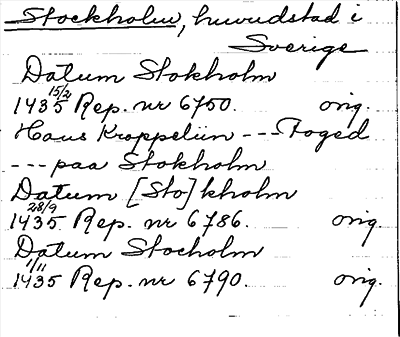 Stockholm, huvudstad i
Sverige
Datum Stokholm
15/2
1435 Rep. nr 6750. orig.
Hans Kroppeliin --- Foged
--- paa Stokholm
Datum [Sto]kholm
28/9
1435 Rep. nr 6786. orig.
Datum Stocholm
1/11
1435 Rep. nr 6790. orig.